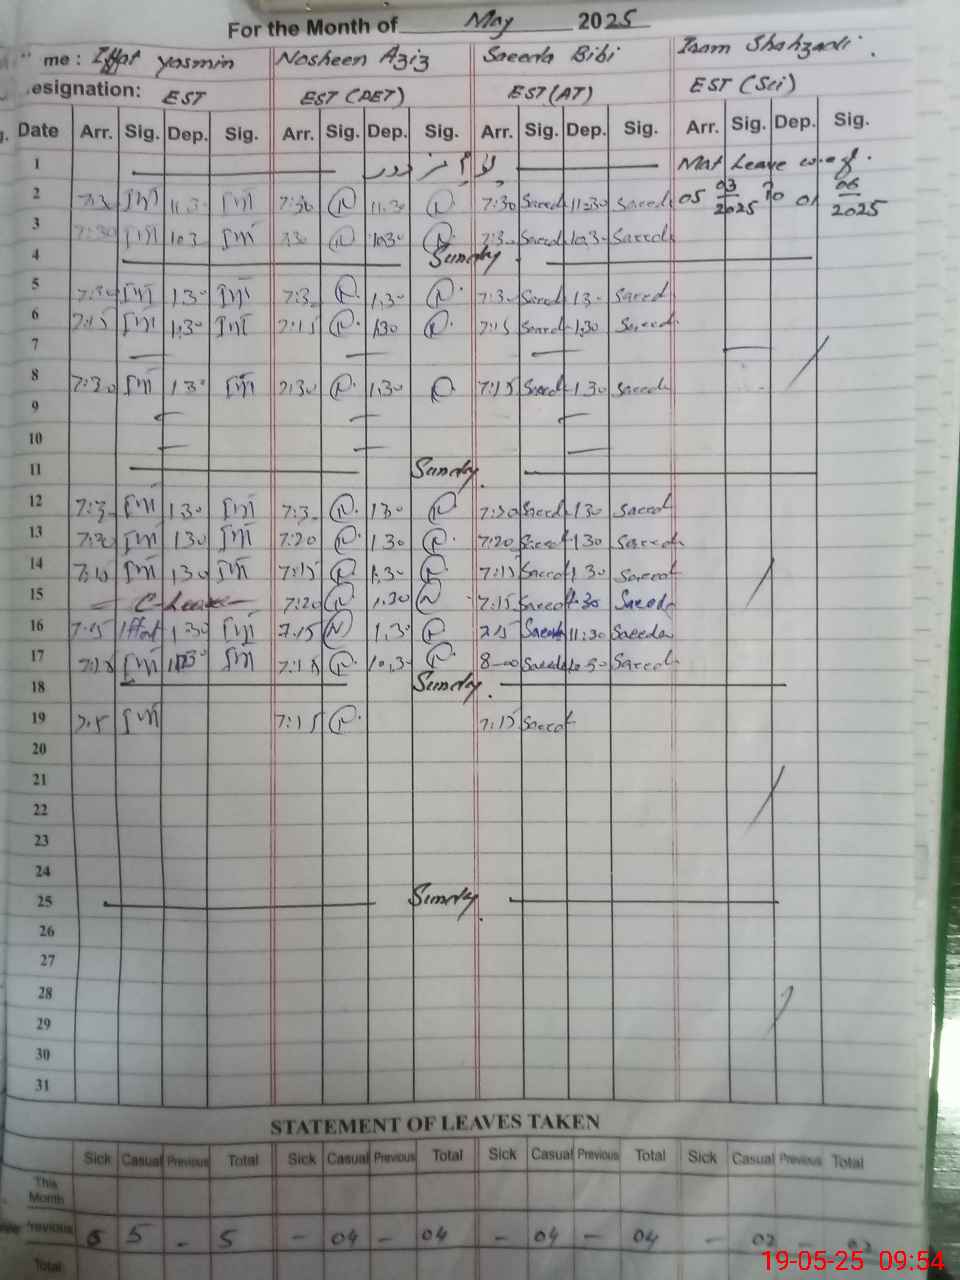 For the Month of May 2025
me : Iffat Yasmin Nosheen Aziz Saeeda Bibi Shahzadi.
esignation: EST EST (PET) EST (AT) EST (Sci)
Date Arr. Sig. Dep. Sig. Arr. Sig. Dep. Sig. Arr. Sig. Dep. Sig. Arr. Sig. Dep. Sig.
1 یوم مزدور Mat Leave w.e.f.
2 7:30 11:30 7:30 N 11:30 N 7:30 Saeed 11:30 Saeed 05 03 2025 To 01 06 2025
3 7:30 10:3 7:30 N 10:30 N 7:3 Saeed 10:3 Saeed
4 Sunday
5 7:30 1:30 7:3 N 1:30 N 7:3 Saeed 1:3 Saeed
6 7:15 1:30 7:15 N 1:30 N 7:15 Saeed 1:30 Saeed
7
8 7:30 1:30 7:30 N 1:30 N 7:15 Saeed 1:30 Saeed
9
10
11 Sunday
12 7:3 1:30 7:3 N 1:30 N 7:20 Saeed 1:30 Saeed
13 7:20 1:30 7:20 N 1:30 N 7:20 Saeed 1:30 Saeed
14 7:15 1:30 7:15 N 1:30 N 7:15 Saeed 1:30 Saeed
15 C-Leave 7:20 N 1:30 N 7:15 Saeed 1:30 Saeeda
16 7:15 Iffat 1:30 7:15 N 1:30 N 7:15 Saeeda 11:30 Saeeda
17 7:15 7:15 N 10:30 N 8-00 Saeeda 10:30 Saeed
18 Sunday
19 7:15 7:15 N 7:15 Saeed
20
21
22
23
24
25 Sunday
26
27
28
29
30
31
STATEMENT OF LEAVES TAKEN
Sick Casual Previous Total Sick Casual Previous Total Sick Casual Previous Total Sick Casual Previous Total
This
Month
revious 5 - 5 - 04 - 04 - 04 - 04 - 02 - 02
Total
19-05-25 09:54